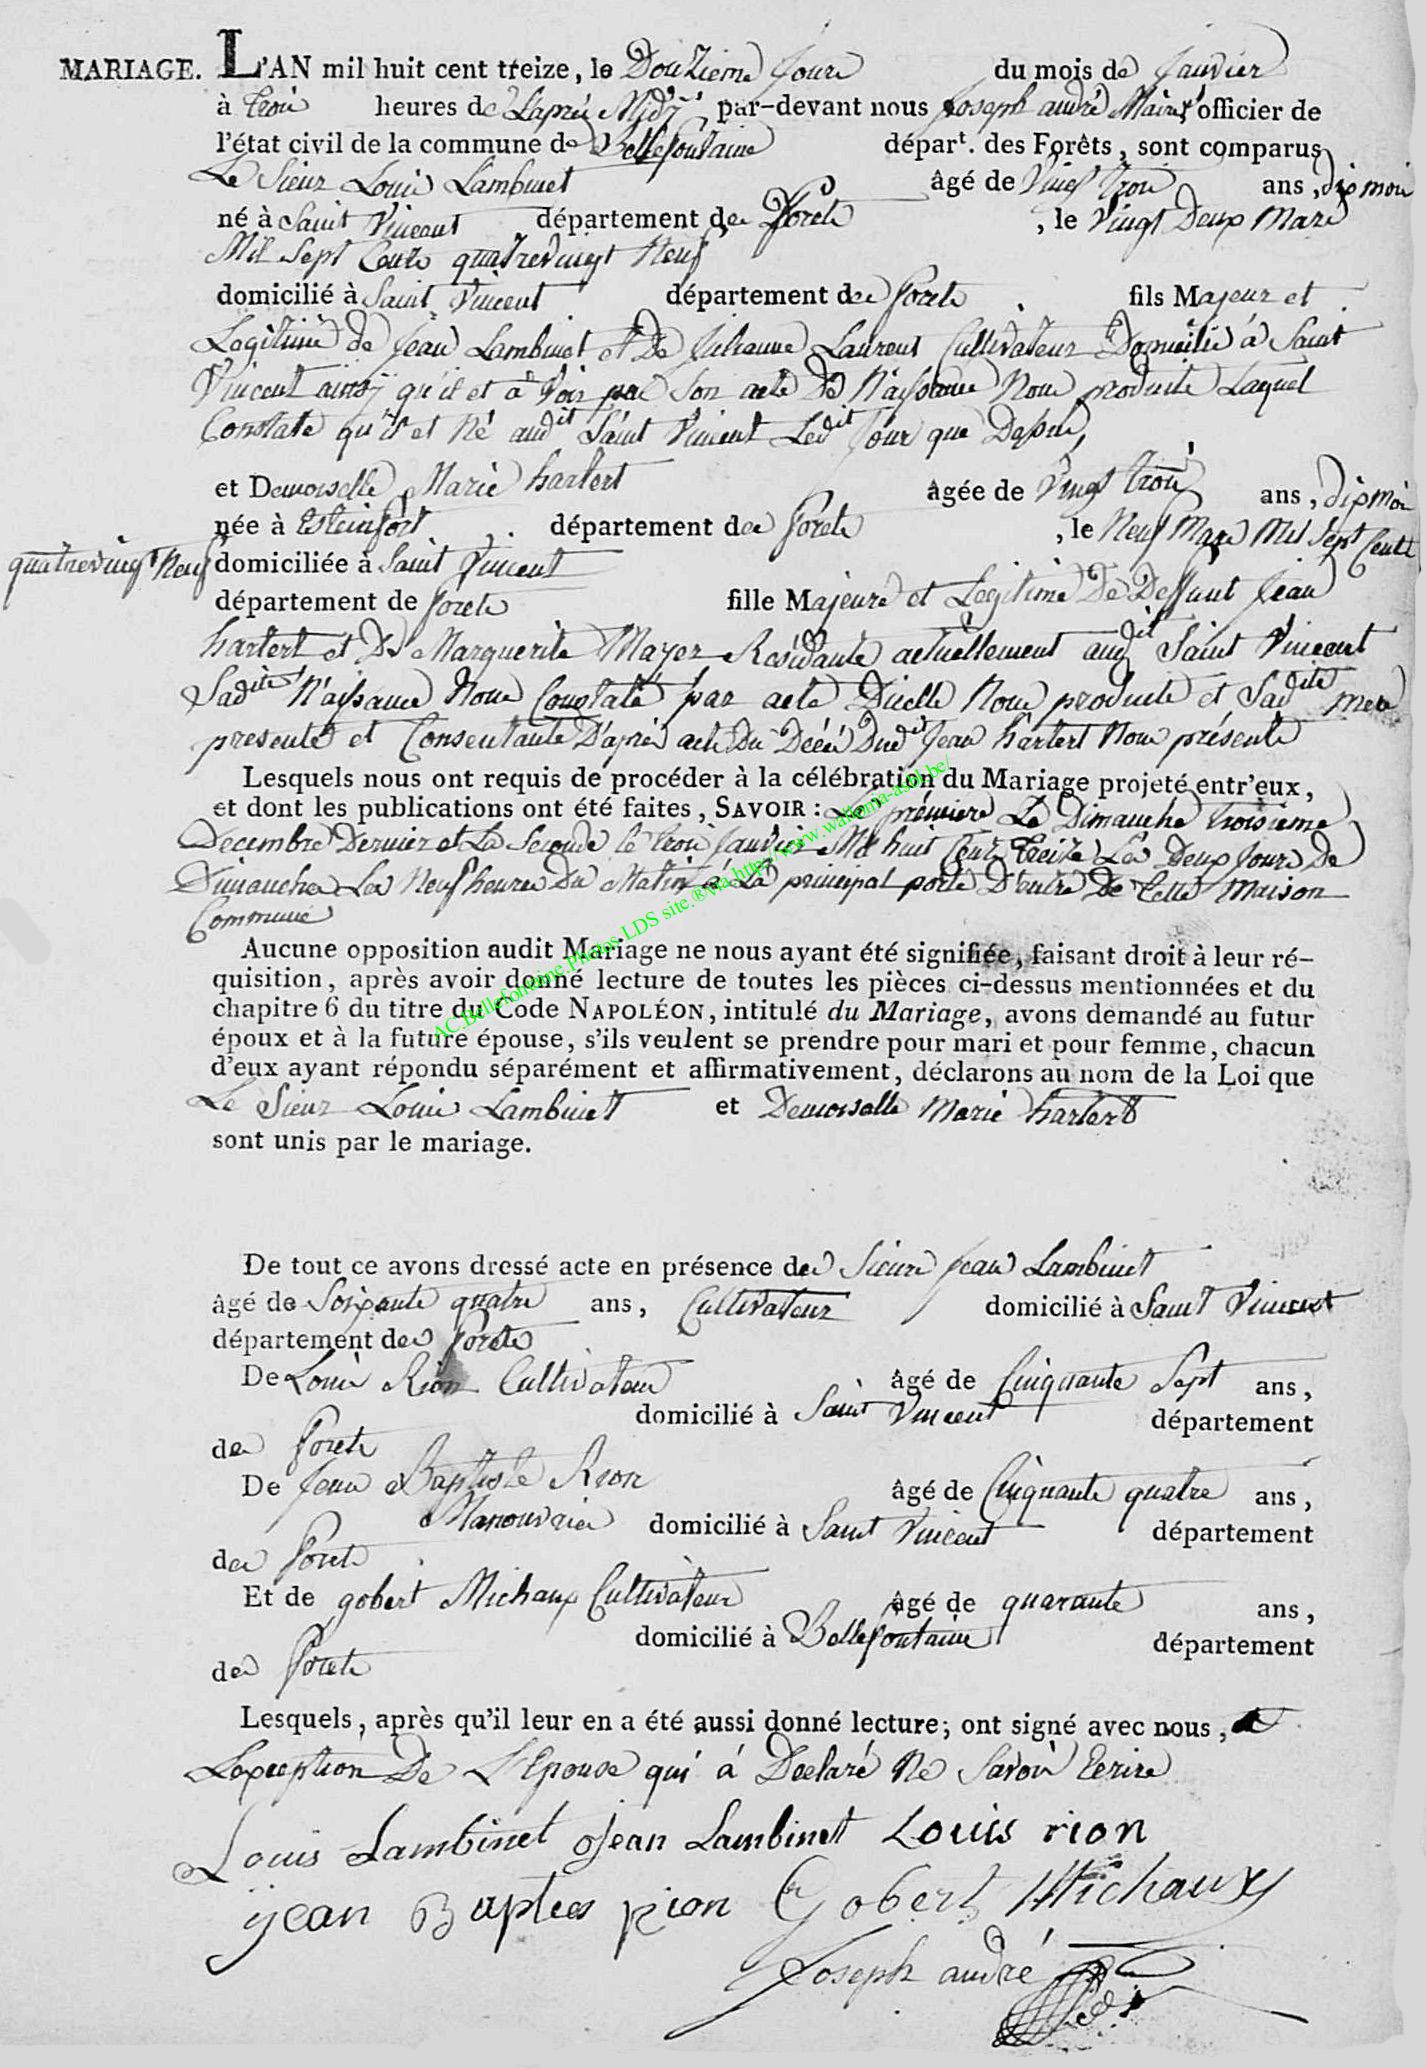 MARIAGE. L'AN mil huit cent treize, le Douzieme Jour du mois de Janvier
à troi heures de Lapréi Midÿ, par-devant nous Joseph andré Maire officier de
l'état civil de la commune de Bellefontaine départ. des Forêts, sont comparus
Le Sieur Loui Lambinet âgé de Vingt troi ans, dix moi
né à Saint Vincent département de Foret, le Vingt Deux Mare
Mil Sept Cent quatrevingt Neuf
domicilié à Saint Vincent département de Foret fils Majeur et
Legitime de Jean Lambinet et De Julienne Laurent Cultivateur Domicilié à Saint
Vincent ainsÿ qu'il et à Voir par Son acte De Naissance Nou produite Laquel
Constate qu'il et Né audit Saint Vincent Ledit Jour que Desu,
et Demoiselle Marie hartert âgée de Vingt troi ans, dix moi
née à Esteinfort département de Foret, le Neuf Mare Mil Sept Cent
quatrevingt Neuf domiciliée à Saint Vincent
département de Foret fille Majeure et Legitime De Deffunt Jean
hartert et De Marguerite Mayer Residante actuellement audit Saint Vincent
Sadite Naissance Nou Constaté par acte Dicelle Nou produite et Sadite mere
presente et Consentante D'aprèi acte Du Décéi Dudit Jean hartert Nou présenté
Lesquels nous ont requis de procéder à la célébration du Mariage projeté entr'eux,
et dont les publications ont été faites, SAVOIR: La prémiere Le Dimanche troisieme
Decembre Dernier et La Seconde le troi Janvier Mil huit Cent treize Les Deux Jours De
Dimanche La Neuf heure Du Matin à La principal porte D'entré De Cette Maison
Commune
Aucune opposition audit Mariage ne nous ayant été signifiée, faisant droit à leur ré-
quisition, après avoir donné lecture de toutes les pièces ci-dessus mentionnées et du
chapitre 6 du titre du Code NAPOLÉON, intitulé du Mariage, avons demandé au futur
époux et à la future épouse, s'ils veulent se prendre pour mari et pour femme, chacun
d'eux ayant répondu séparément et affirmativement, déclarons au nom de la Loi que
Le Sieur Loui Lambinet et Demoiselle Marie hartert
sont unis par le mariage.
AC.Bellefontaine.Photos LDS site.® via http://www.wallonia-asbl.be/
De tout ce avons dressé acte en présence de Sieur Jean Lambinet
âgé de Soixante quatre ans, Cultivateur domicilié à Saint Vincent
département de Foret
De Loui Rion Cultivateur âgé de Cinquante Sept ans,
domicilié à Saint Vincent département
de Foret
De Jean Baptiste Rion âgé de Cinquante quatre ans,
Manouvrier domicilié à Saint Vincent département
de Foret
Et de gobert Michaux Cultivateur âgé de quarante ans,
domicilié à Bellefontaine département
de Foret
Lesquels, après qu'il leur en a été aussi donné lecture; ont signé avec nous, a
Lexception De L'Epouse qui à Declaré Ne Savoir Ecrire
Louis Lambinet Jean Lambinet Louis rion
ijean Baptees rion Gobert Michaux
Joseph andré